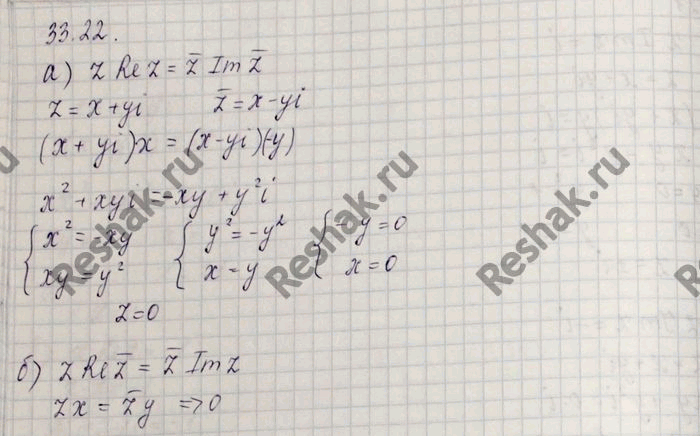 33.22.
а) z Re z = z̄ Im z̄
z = x + yi z̄ = x - yi
(x + yi)x = (x - yi)(-y)
x² + xyi = -xy + y²i
{ x² = -xy { y² = -y² { y = 0
{ xy = y² { x = y { x = 0
z = 0
б) z Re z̄ = z̄ Im z
zx = z̄y => 0
Reshak.ru
Reshak.ru
Reshak.ru